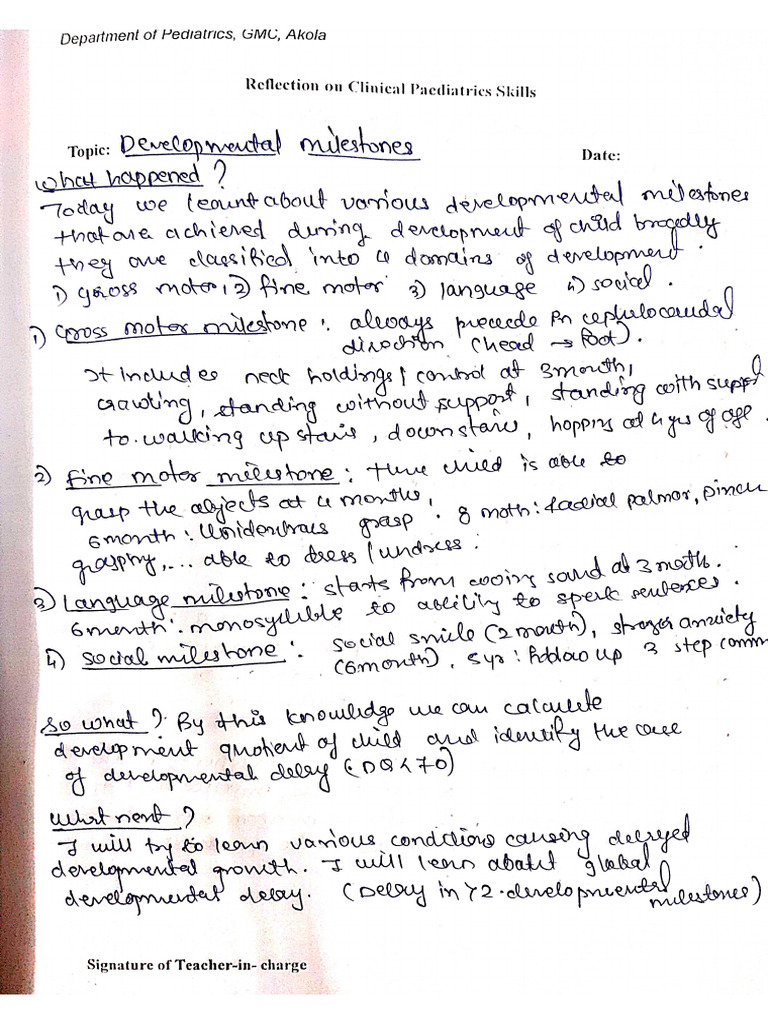 Department of Pediatrics, GMC, Akola
Reflection on Clinical Paediatrics Skills
Topic: Developmental milestones Date:
What happened ?
Today we learnt about various developmental milestones
that are achieved during development of child broadly
they are classified into 4 domains of development.
1) gross motor, 2) fine motor 3) language 4) social.
1) Gross motor milestone : always precede in cephalocaudal
direction (head → foot).
It includes neck holdings / control at 3 month,
crawling, standing without support, standing with support
to walking up stairs, down stairs, hopping at 4 yrs of age.
2) fine motor milestone : there child is able to
grasp the objects at 4 months,
6 month : Unidextrous grasp. 8 moth : Radial palmor, pincer
grasping, ... able to dress / undress.
3) Language milestone : starts from cooing sound at 3 moth.
6 month : monosyllible to ability to speak sentences.
4) social milestone : social smile (2 mouth), stranger anxiety
(6 month), 5 yr : follow up 3 step comm
So what ? By this knowledge we can calculate
development quotient of child and identify the case
of developmental delay (DQ < 70)
What next ?
I will try to learn various conditions causing delayed
developmental growth. I will learn about global
developmental delay. (Delay in >2 developmental
milestones)
Signature of Teacher-in- charge